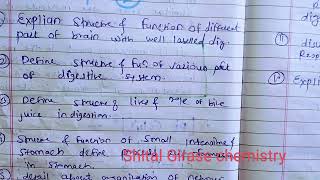 Explian Structre & function of different
part of brain with well labelled dig.
Define structre & fun of various part
of digestive system.
Define structre & live & role of bile
juice in digestion.
Structre & function of small intestine &
stomach define
in stomach.
detail about organization of nervous
dig
11
dis
Resp
12 Expl
Shital Girase chemistry